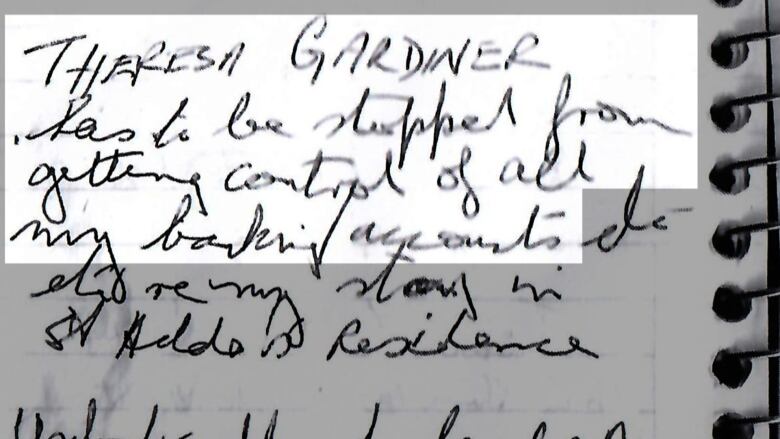 THERESA GARDINER
has to be stopped from
getting control of all
my banking accounts
re my stay in
St Residence